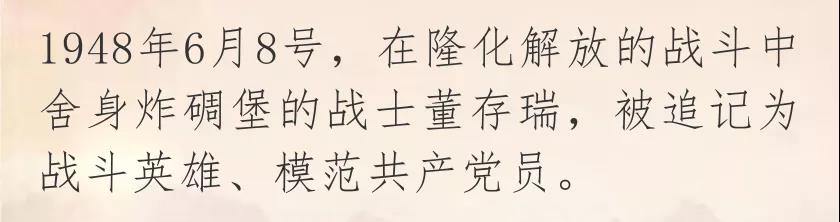 1948年6月8号，在隆化解放的战斗中
舍身炸碉堡的战士董存瑞，被追记为
战斗英雄、模范共产党员。